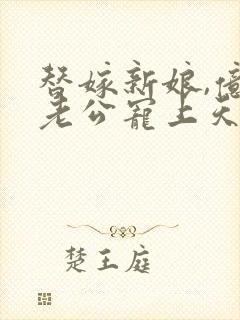 替嫁新娘,億
老公寵上天
楚王庭